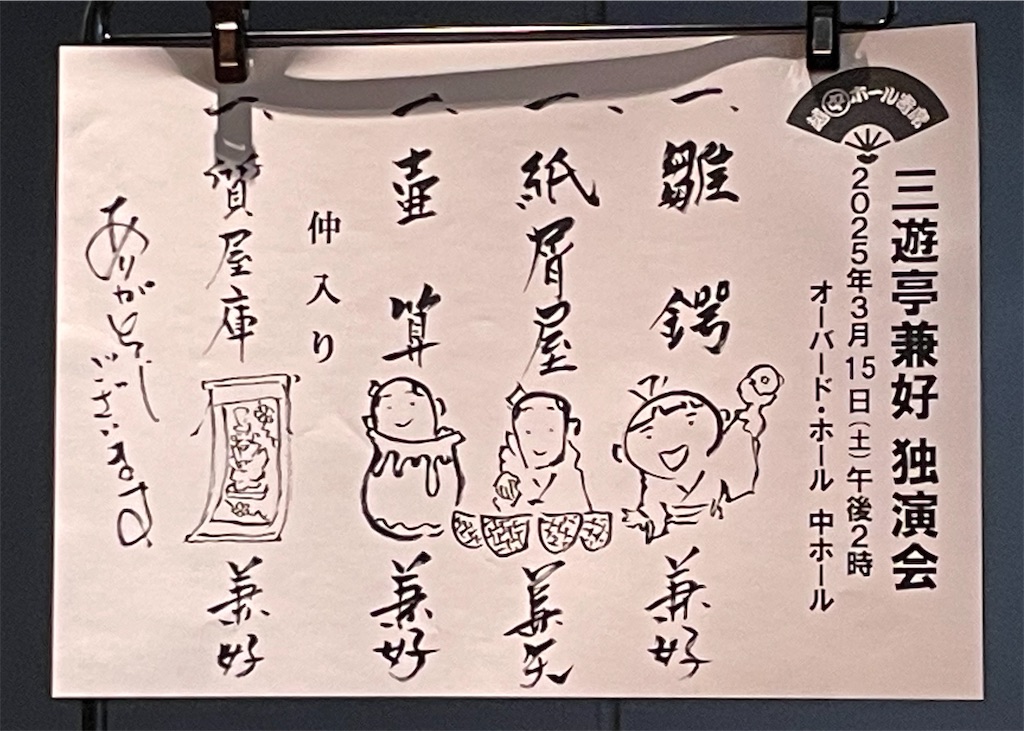 中ホール寄席
三遊亭兼好 独演会
2025年3月15日(土)午後2時
オーバード・ホール 中ホール
一、雛鍔 兼好
一、紙屑屋 兼矢
一、壷算 兼好
仲入り
一、質屋庫 兼好
ありがとうございます